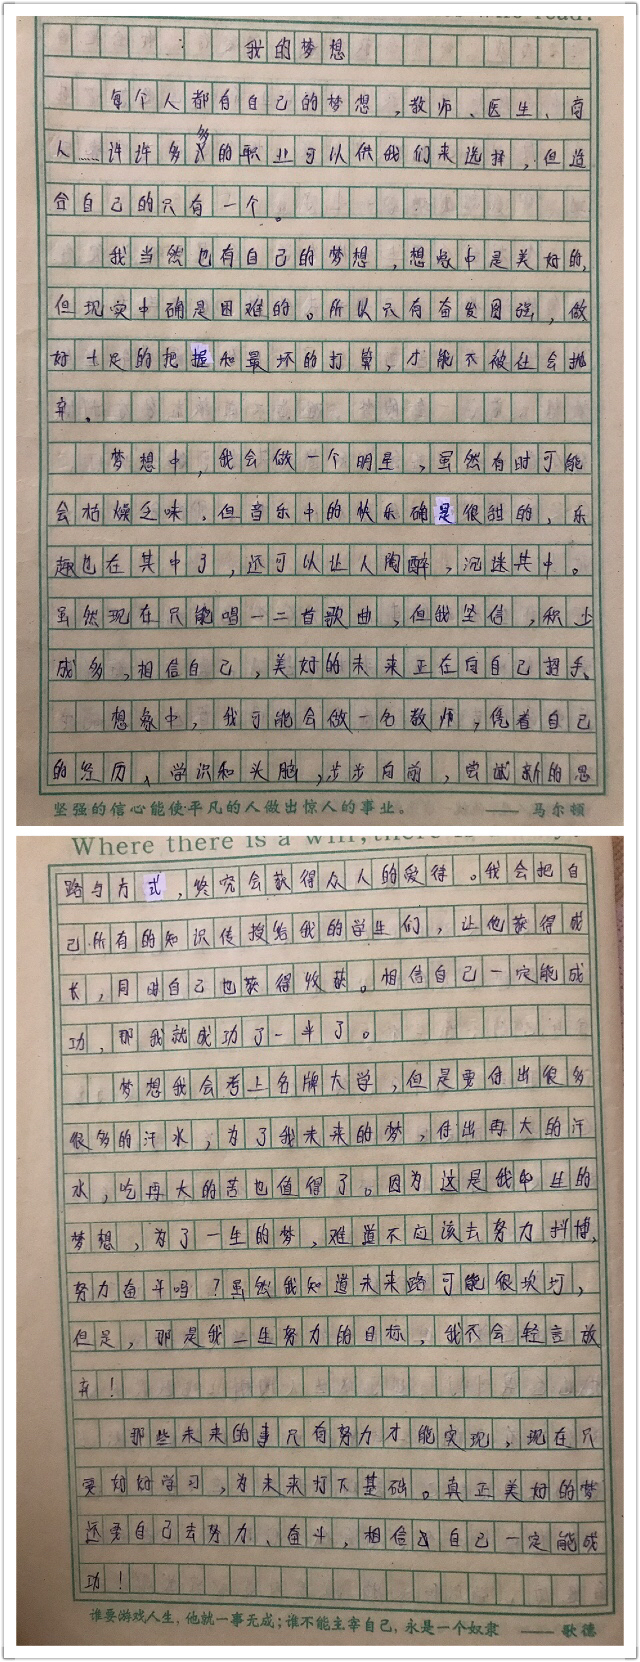 我的梦想
每个人都有自己的梦想，教师、医生、商
人……许许多多的职业可以供我们来选择，但适
合自己的只有一个。
我当然也有自己的梦想，想象中是美好的，
但现实中确是困难的。所以只有奋发图强，做
好十足的把握和最坏的打算，才能不被社会抛
弃。
梦想中，我会做一个明星，虽然有时可能
会枯燥乏味，但音乐中的快乐确是很甜的，乐
趣也在其中了，还可以让人陶醉，沉迷其中。
虽然现在只能唱一二首歌曲，但我坚信，积少
成多，相信自己，美好的未来正在向自己招手。
想象中，我可能会做一名教师，凭着自己
的经历、学识和头脑，步步向前，尝试新的思
坚强的信心能使平凡的人做出惊人的事业。 —— 马尔顿
Where there is a will, there
路与方式，终究会获得众人的爱待。我会把自
己所有的知识传授给我的学生们，让他获得成
长，同时自己也获得收获。相信自己一定能成
功，那我就成功了一半了。
梦想我会考上名牌大学，但是要付出很多
很多的汗水，为了我未来的梦，付出再大的汗
水，吃再大的苦也值得了。因为这是我毕生的
梦想，为了一生的梦，难道不应该去努力拼搏，
努力奋斗吗？虽然我知道未来路可能很坎坷，
但是，那是我一生努力的目标，我不会轻言放
弃！
那些未来的事只有努力才能实现，现在只
要好好学习，为未来打下基础。真正美好的梦
还要自己去努力、奋斗，相信自己一定能成
功！
谁要游戏人生，他就一事无成；谁不能主宰自己，永是一个奴隶 —— 歌德